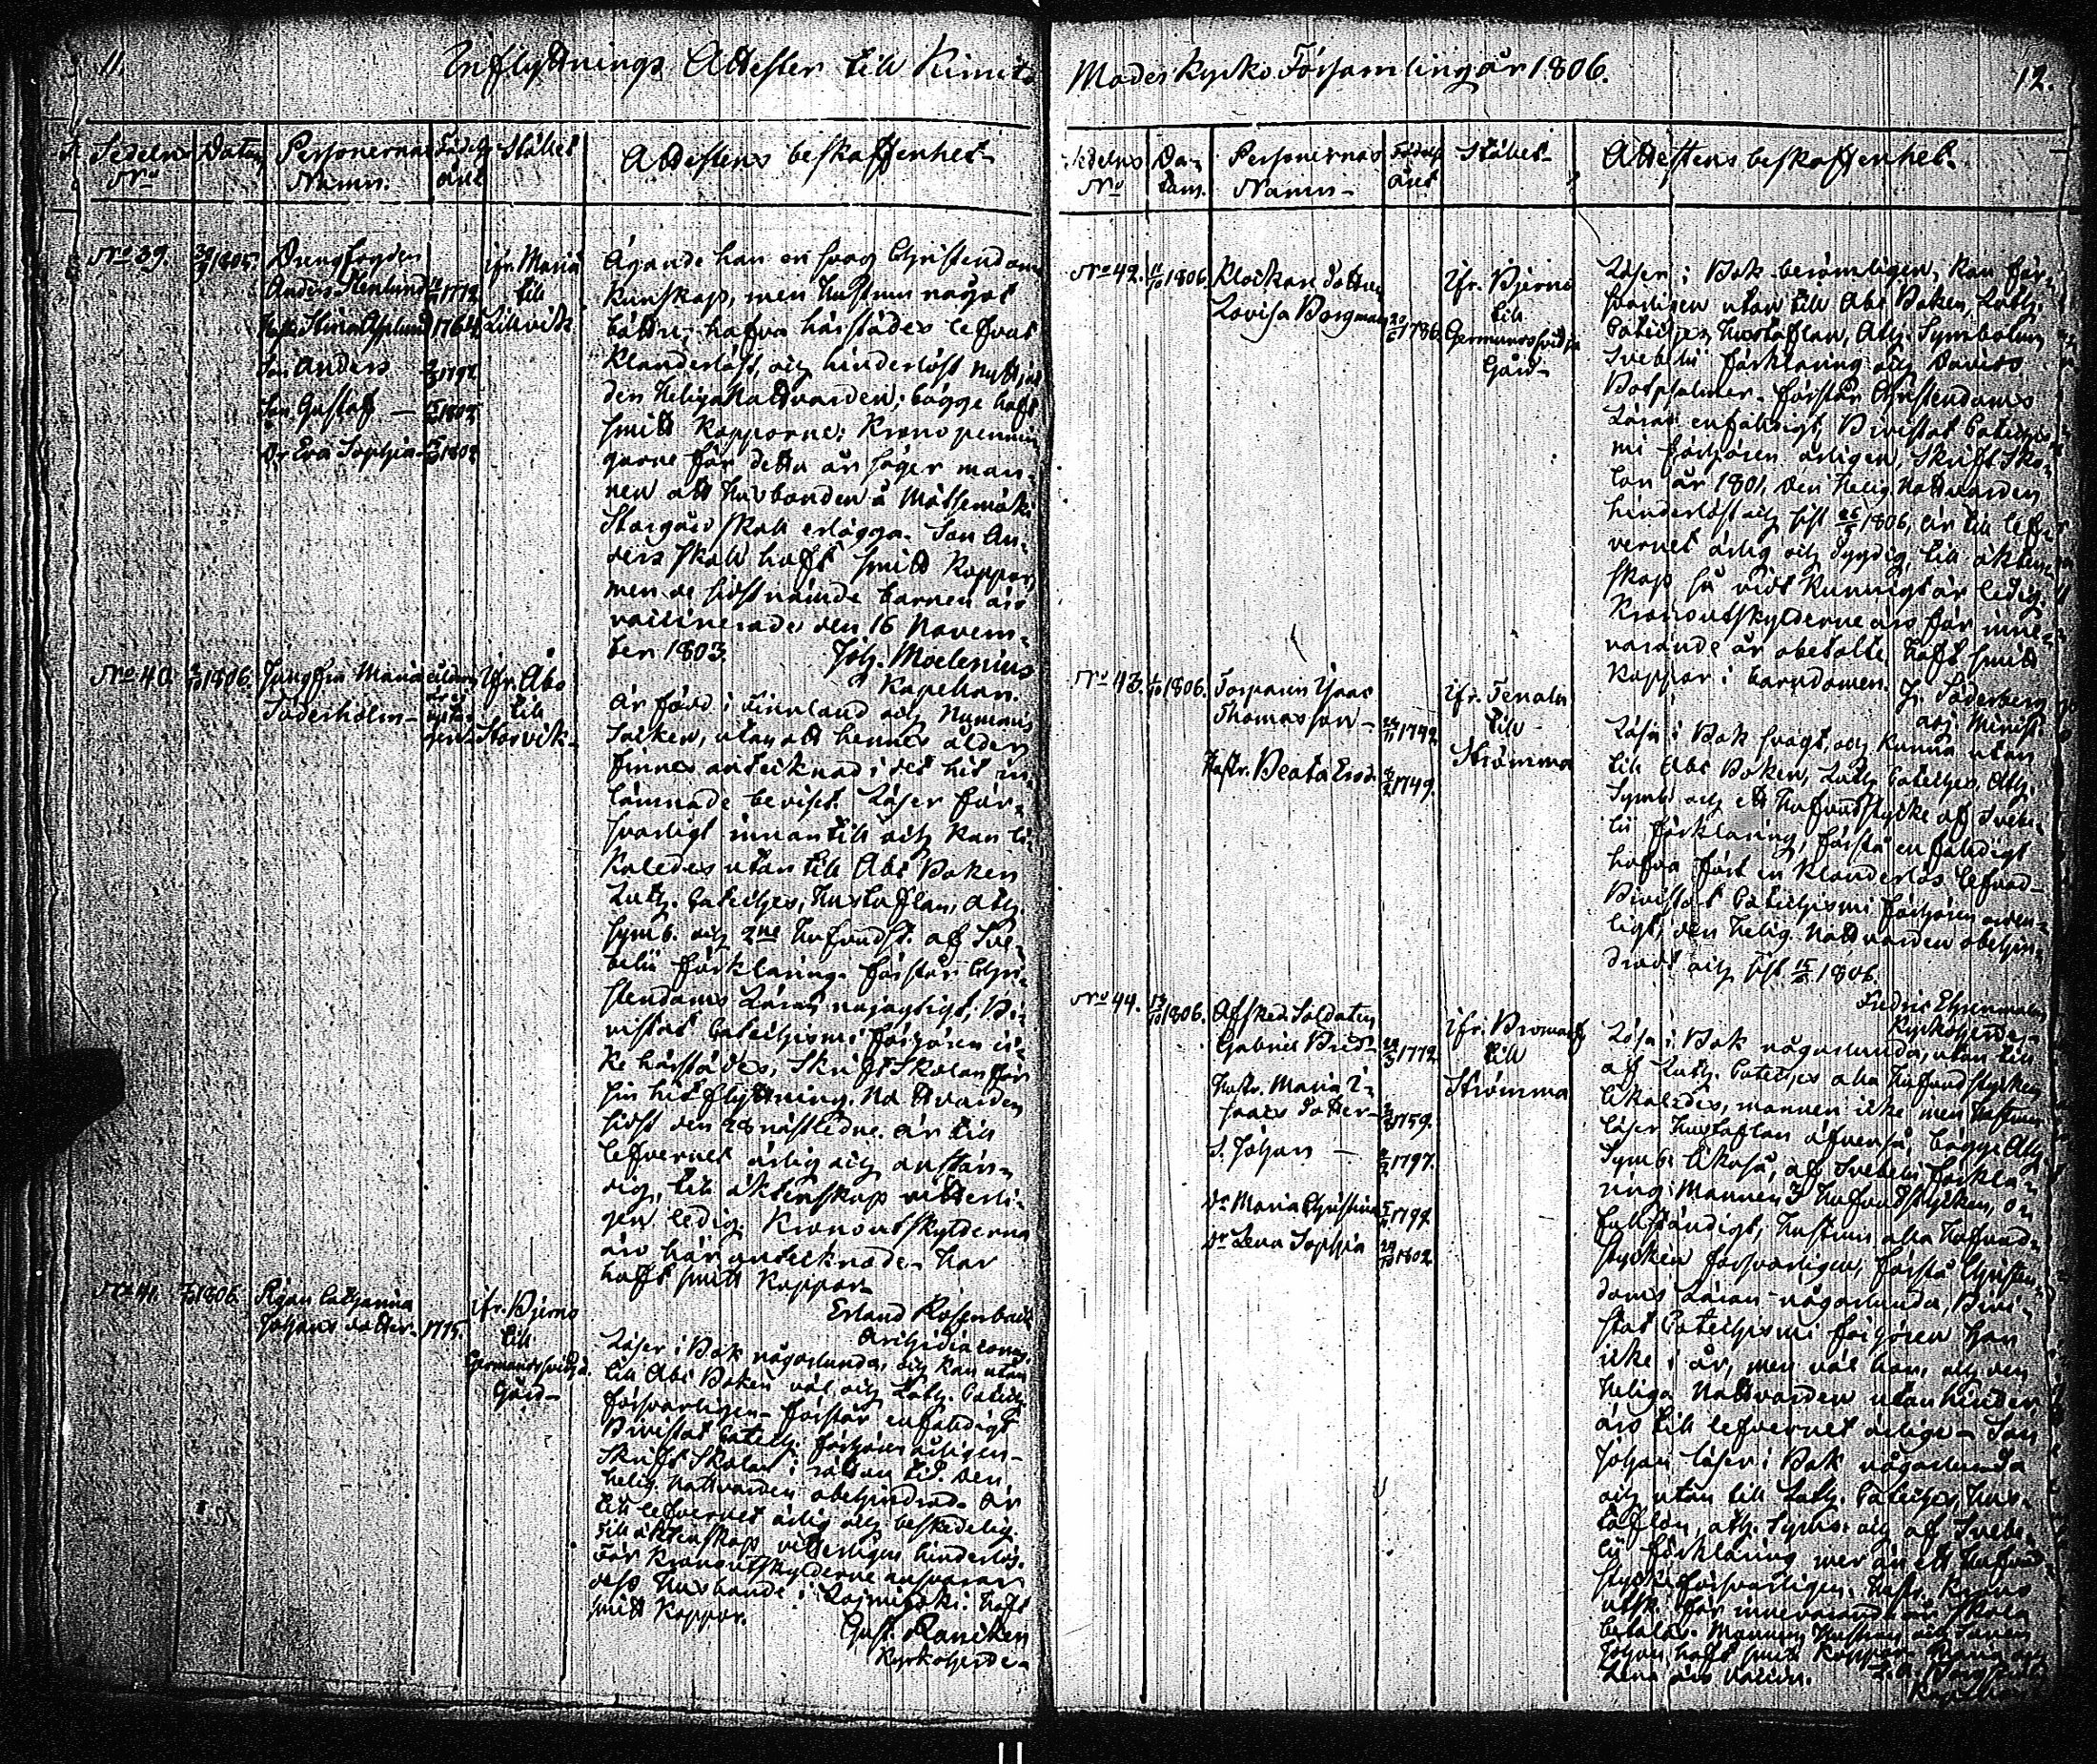 11.
Inflyttnings Attester till Kimito
Sedelns No
Datum
Personernas Namn.
Födelse året
Stället
Attestens beskaffenhet
No 39.
1805.
Drengfogden
Anders Stenlund 1772
Hustr. Stina Asplund 1764
Son Anders
Son Gustaf —
Dr Eva Sophia
ifr. Maria
till
Lillvik
Ägande han en svag Christendoms
kunskap, men hustrun något
bättre; hafva härstädes lefvat
klanderlöst, och hinderlöst nyttjat
den Heliga Nattvarden; bägge haft
smitt Kopporne; Krono pennin-
garne för detta år säger man-
nen att husbonden å
Storgård skall erlägga. Son An-
ders skall haft smitt Koppor,
men de sidstnämde barnen äro
vaccinerade den 16 Novem-
ber 1803.
Joh. Moelenius
Kapellan.
No 40.
1806.
Jungfru Maria
Söderholm —
åldern
är ej
upta-
gen
ifr. Åbo
till
Storvik
är född i Finnland och Nyman's
Socken, utan att hennes ålder
finnes antecknad i det hit in-
lämnade beviset. Läser för-
svarligt innantill och kan li-
kaledes utantill Abc Boken
Luth. Cateches, Hustaflan, Ath.
Symb. och 2ne Hufvudst. af Sve-
belii förklaring. förstår Chri-
stendoms Läran nöjagtigt; Bi-
vistat Catechismi förhören ic-
ke härstädes, Skrift Skolan för
sin hitflyttning. Nattvarden
sidst den 28 nästledne. är till
lefvernet ärlig och anstän-
dig, till äktenskap vitterli-
gen ledig. Kronoutskylderna
äro här antecknade. Har
haft smitt Koppor —
Erland Rosenback
Archidiaconus.
No 41.
1806.
Pigan Catharina
Johans dotter — 1775.
ifr. Bjerno
till
Germundssvedja
Gård —
Läser i Bok någorlunda, och kan utan
till Abc Boken väl och Luth. Catech.
försvarligen — förstår enfaldigt
Bivistat Catech. förhören årligen —
Skrift Skolan i rättan tid. Den
helig. Nattvarden obehindrad. är
till lefvernet ärlig och beskedelig.
till äktenskap vitterligen hinderlös.
För Kronoutskylderne ansvarar
dess Husbonde i. Haft
smitt Koppor.
Gust. Rancken
Kyrkoherde —
Moder kyrko Församling år 1806.
12.
Sedelns No
Datum.
Personernas Namn —
Födelse året
Stället —
Attestens beskaffenhet —
No 42.
1806.
Klockare dottren
Lovisa Borgman 1786.
ifr. Bjerno
till
Germundssvedja
Gård —
Läser i Bok berömligen, kan för-
svarligen utan till Abc Boken, Luth.
Cateches, Hustaflan, Ath. Symbolum,
Svebelii förklaring och Davids
Botpsalmer. förstår Christendoms
Läran enfaldigt. Bivistat Catechis-
mi förhören årligen, Skrift Sko-
lan år 1801, den helig. Nattvarden
hinderlöst och sist 1806, är till lef-
vernet ärlig och dygdig, till äkten-
skap så vidt kunnigt är ledig.
Kronoutskylderne äro för inne-
varande år obetalte. Haft smitt
Koppor i barndomen.
J. Söderberg
adj. Minist.
No 43.
1806.
Torparen Isaac
Thomasson — 1742
Hustr. Beata Ersd. 1749.
ifr. Tenala
till
Strömma
Läsa i Bok svagt, och kunna utan
till Abc Boken, Luth. Cateches, Ath.
Symb. och ett Hufvudstycke af Svebe-
lii förklaring, förstå enfaldigt
hafva fört en klanderlös lefnad —
Bivistat Catechismi förhören orden-
ligt, den helig. Nattvarden obehin-
dradt och sist 1806.
Fredric Ehrenmalm
Kyrkoherde —
No 44.
1806.
Afsked. Soldaten
Gabriel 1772
Hustr. Maria I-
saacs dotter — 1759.
S. Johan — 1797.
Dr Maria Christina 1799
Dr Lena Sophia 1802
ifr. Bromarf
till
Strömma
Läsa i Bok någorlunda, utan till
af Luth. Cateches alla Hufvudstycken
likaledes, mannen icke men hustrun
läser Hustaflan äfvenså, bägge Ath.
Symb. likaså, af Svebelii förkla-
ring: Mannen 3 Hufvudstycken, o-
fullständigt, hustrun alla Hufvud-
stycken försvarligen, förstå Christen-
doms Läran någorlunda, Bivi-
stat Catechismi förhören han
icke i år, men väl hon, och den
Heliga Nattvarden utan hinder
äro till lefvernet ärlige — Son
Johan läser i Bok någorlunda
och utan till Luth. Cateches, Hus-
taflan, Ath. Symb. och af Svebe-
lii förklaring mer än ett Hufvud-
stycke försvarligen. Krono
utsk. för innevarande år skola
betalas. Mannen, hustrun och Sonen
Johan haft smitt Koppor. Maria och
Lena äro vaccin.
Kapellan
11